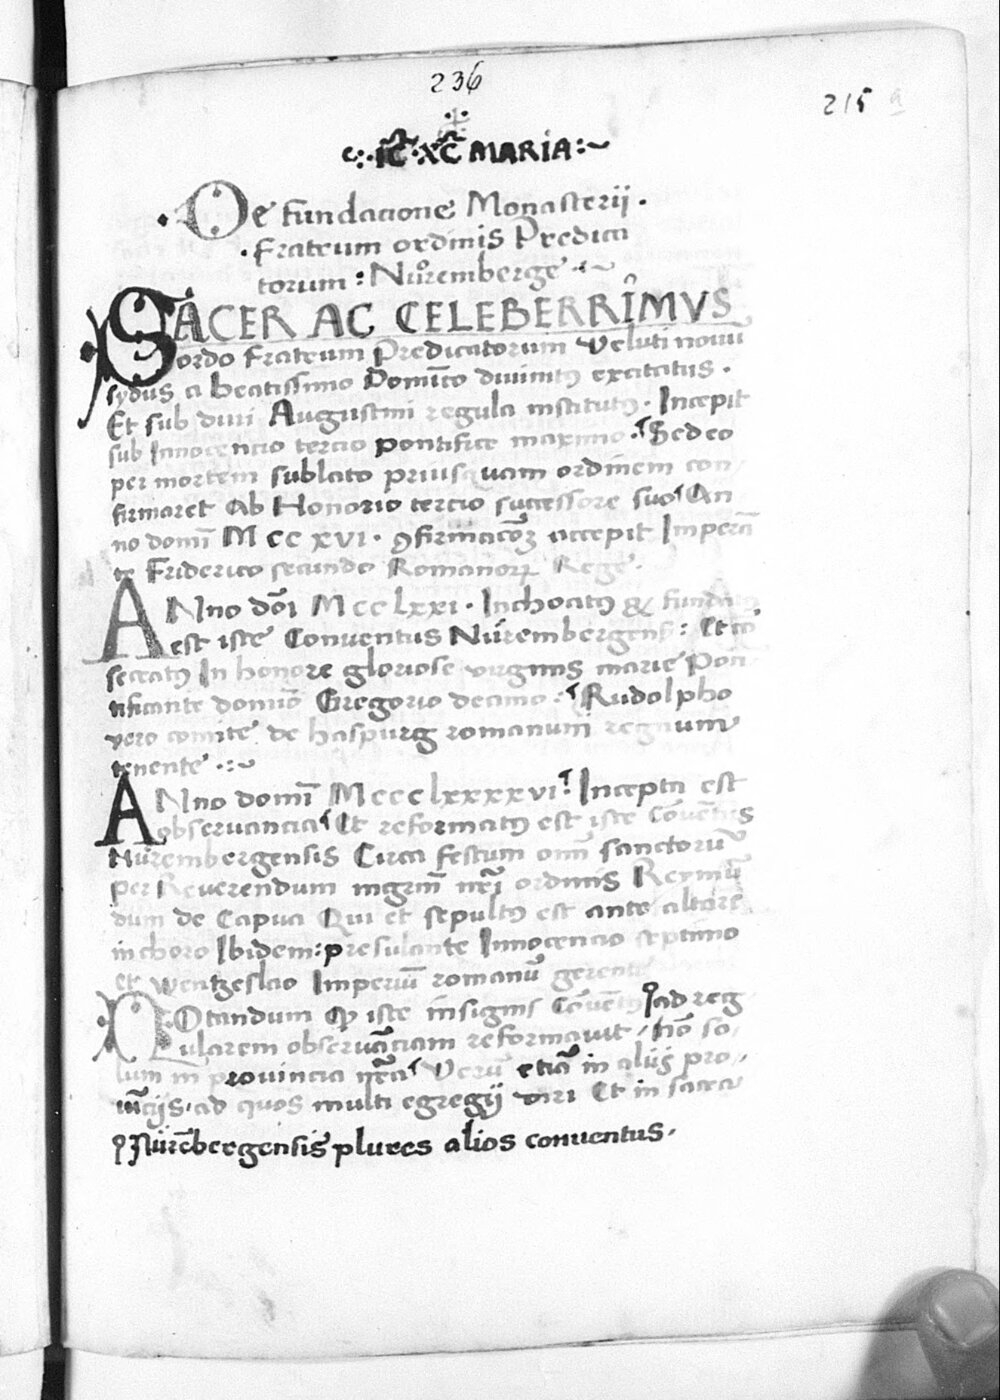 236
215 a
·:· ic̄ xc̄ MARIA :~
De fundacione Monasterii ·
· fratrum ordinis Predica
torum : Nůrembergē ·~
SACER AC CELEBERRIMVS
ordo fratrum Predicatorum veluti nouū
sydus a beatissimo Domīco diuinitꝰ excitatus ·
Et sub diui Augustini regula institutꝰ · Incepit
sub Innocencio tercio pontifice maximo · Sed eo
per mortem sublato priusquam ordinem con
firmaret Ab Honorio tercio successore suo An
no domī M cc xvi · ꝯfirmacōꝫ accepit Imperā
te Friderico secundo Romanoꝝ Rege ·
ANno dōi M cc lxxi · Inchoatꝰ & fundatꝰ
est iste Conuentus Nůrembergenß : Et cō
secratꝰ In honore gloriose virginis marie Pon
tificante domīo Gregorio decimo : Rudolpho
vero comite de haspurg romanum regnum
tenente ·:~
ANno domī M ccc lxxxxvi Incepta est
obseruancia Et reformatꝰ est iste Cōuentus
Nůrembergensis Circa festum oīm sanctorū
per Reuerendum mgrm̄ nrī ordinis Reymū
dum de Capua Qui et sepultꝰ est ante altare
in choro Ibidem : presulante Innocencio septimo
et wentzeslao Imperiū romanū gerente
NOtandum ꝙ iste insignis Cōuētꝰ ad reg
ularem obseruāciam reformauit · nō so
lum in prouincia nrā Verū etiā in aliis pro
uīciis · ad quos multi egregii viri Et in sacra
Nůrēbergensis plures alios conuentus ·